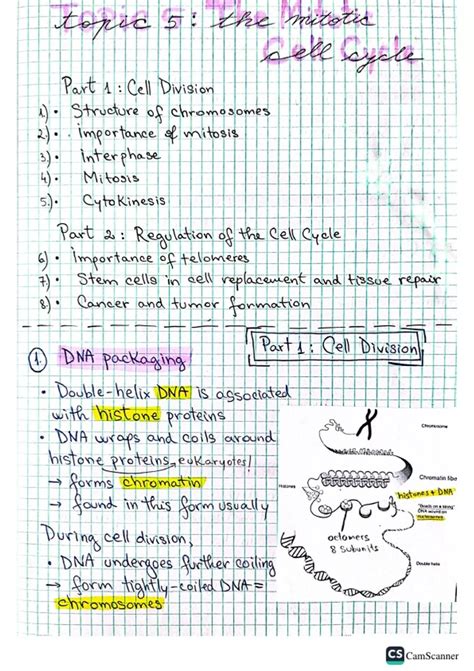 topic 5: the mitotic
cell cycle
Part 1: Cell Division
1) • Structure of chromosomes
2) • importance of mitosis
3) • interphase
4) • Mitosis
5) • Cytokinesis
Part 2: Regulation of the Cell Cycle
6) • Importance of telomeres
7) • Stem cells in cell replacement and tissue repair
8) • Cancer and tumor formation
Part 1: Cell Division
1. DNA packaging
• Double-helix DNA is associated
with histone proteins
• DNA wraps and coils around
histone proteins, eukaryotes!
→ forms chromatin
→ found in this form usually
During cell division,
• DNA undergoes further coiling
→ form tightly-coiled DNA =
chromosomes
Chromosome
Chromatin fibre
Histones
histones + DNA
"Beads on a string"
DNA wound on
nucleosomes
octomers
8 subunits
Double helix
CS CamScanner